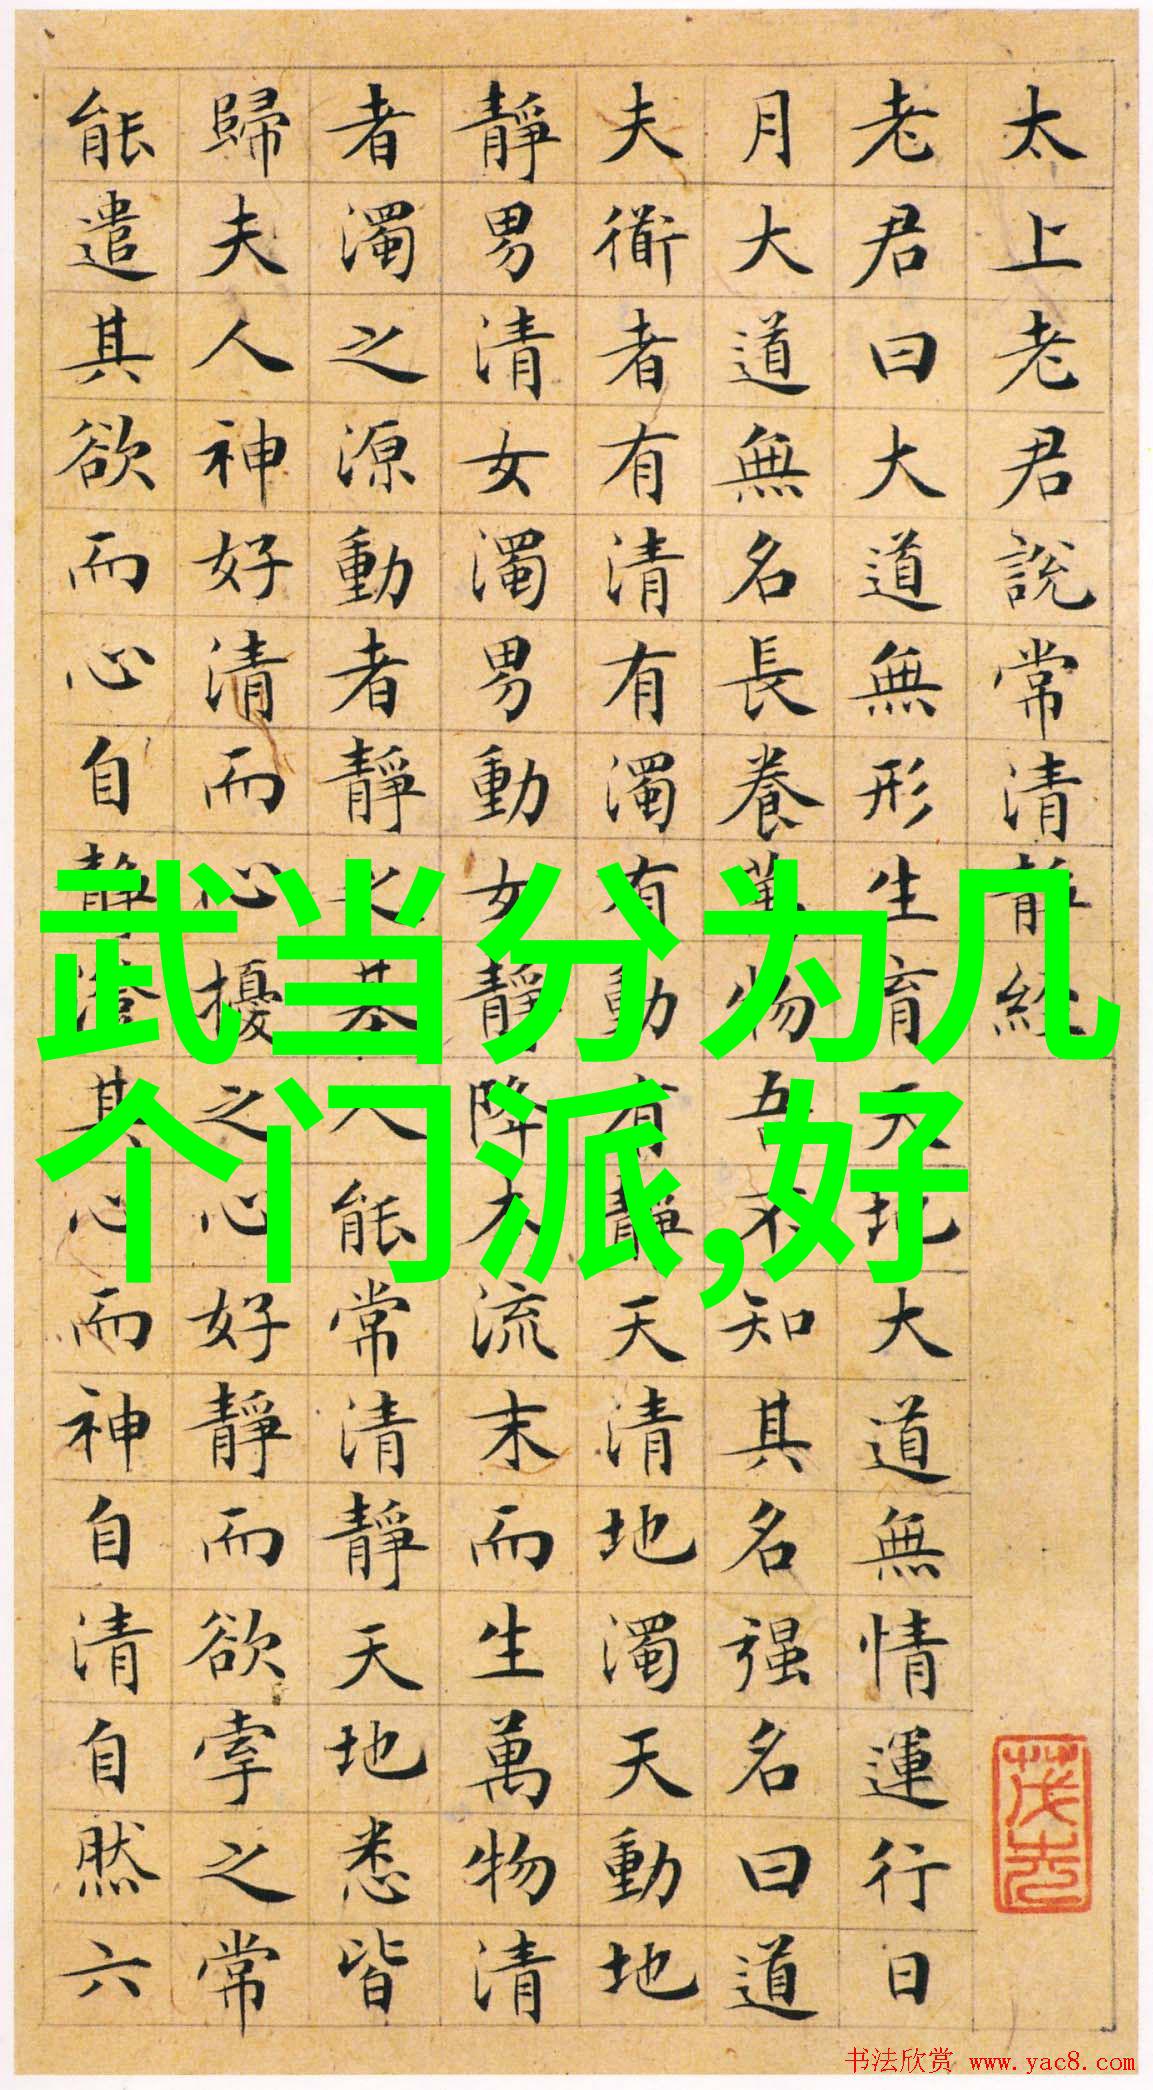 太上老君說常清靜經
老君曰大道無形生育天地大道無情運行日
月大道無名長養萬物吾不知其名强名曰道
夫衜者有清有濁有動有靜天清地濁天動地
靜男清女濁男動女靜降本流末而生萬物清
者濁之源動者靜之基人能常清靜天地悉皆
歸夫人神好清而心擾之心好靜而欲牽之常
能遣其欲而心自靜澄其心而神自清自然六
武当分为几
个门派,好
书法欣赏 www.yac8.com